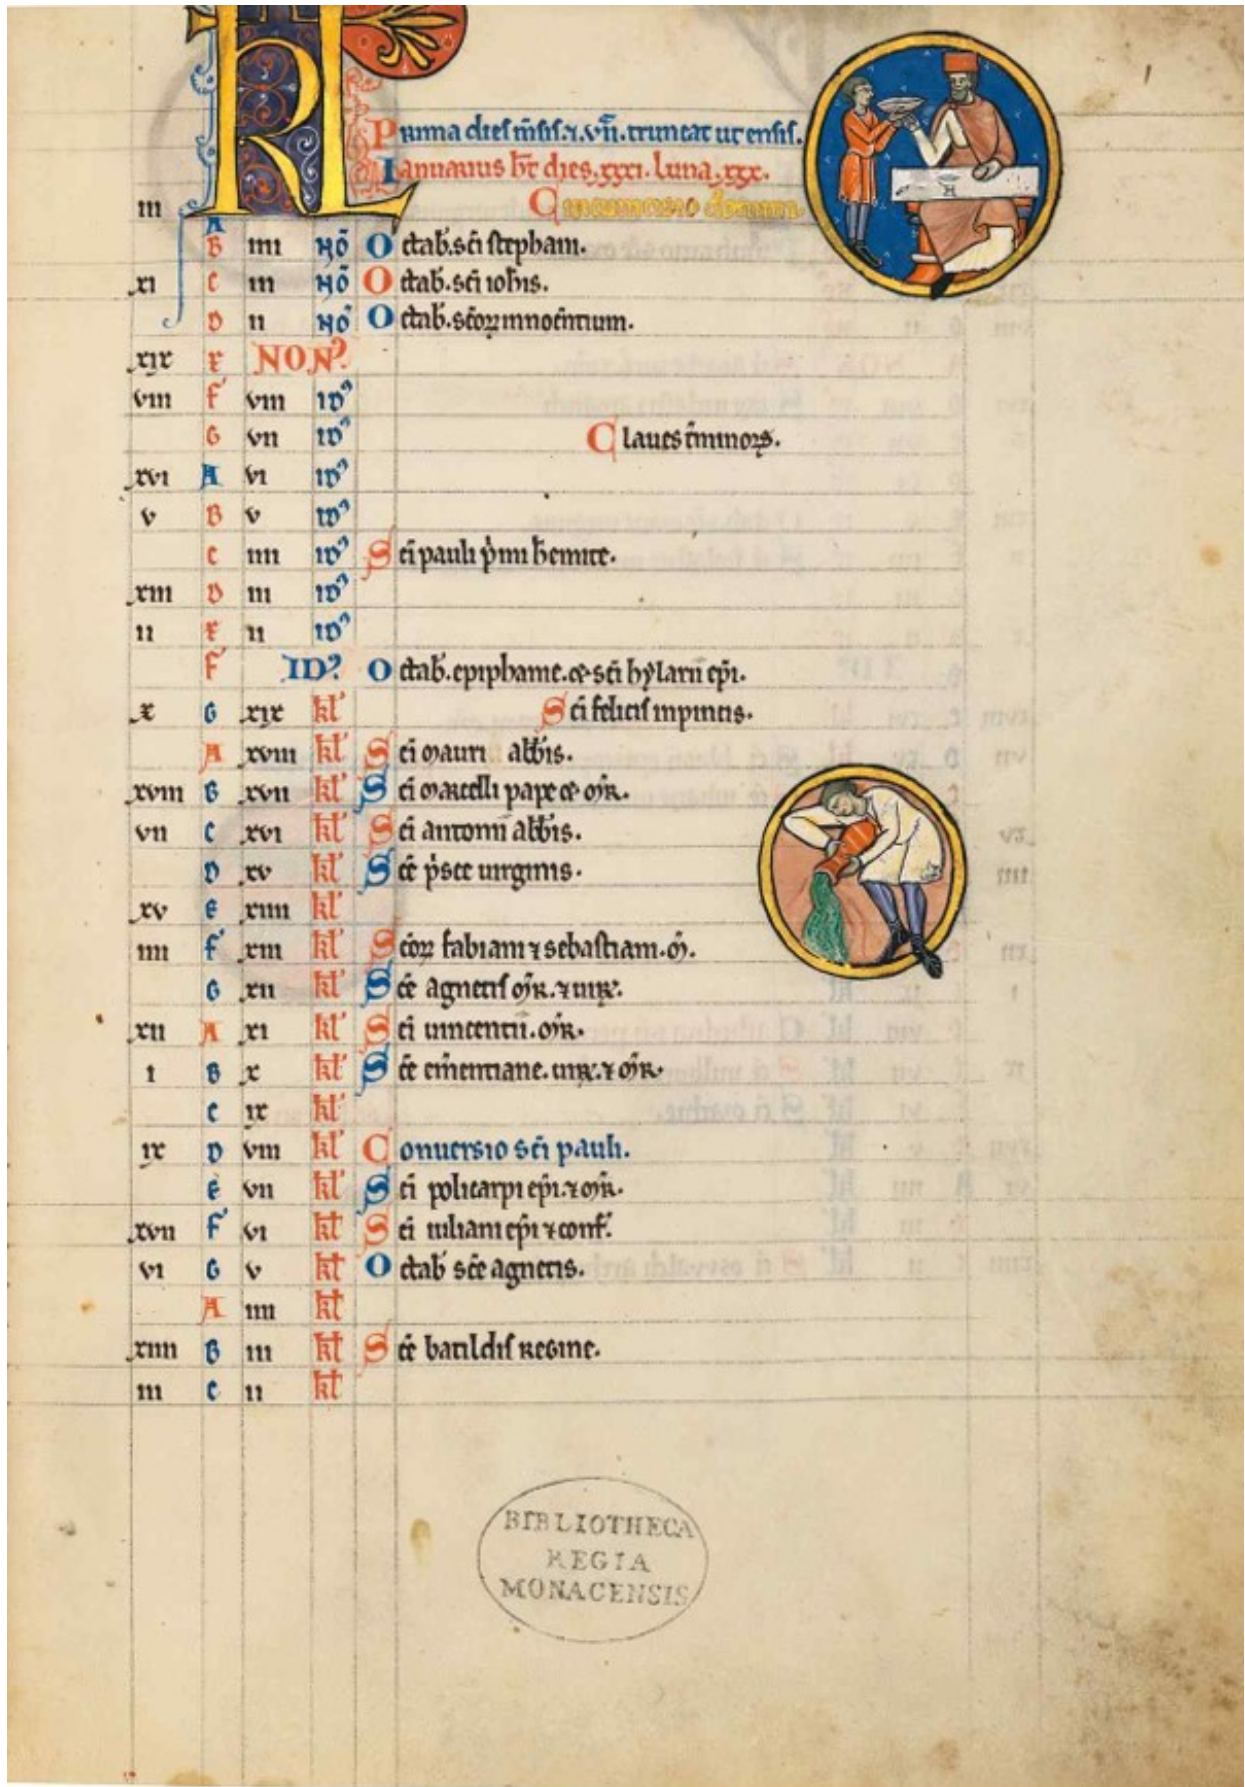 KL
Prima dies m̄sis. ⁊. vıı̄. truncat ut ensis.
Ianuarius hr̄ dies. xxxi. luna. xxx.
iii A Circumcisio domini.
B iiii Nō Octab̄. sc̄i stephani.
xi C iii Nō Octab̄. sc̄i ioh̄is.
D ii Nō Octab̄. sc̄oꝝ innocentium.
xix E NON᾽
viii F viii id᾽
G vii id᾽ Claues t̄minoꝝ.
xvi A vi id᾽
v B v id᾽
C iiii id᾽ Sc̄i pauli p̍mi h̄emite.
xiii D iii id᾽
ii E ii id᾽
F ID᾽ Octab̄. epiphanie. & sc̄i hẏlarii ep̄i.
x G xix kl᾽ Sc̄i felicis inpincis.
A xviii kl᾽ Sc̄i mauri abb̄is.
xviii B xvii kl᾽ Sc̄i marcelli pape & m̄r.
vii C xvi kl᾽ Sc̄i antonii abb̄is.
D xv kl᾽ Sc̄e p̍sce uirginis.
xv E xiiii kl᾽
iiii F xiii kl᾽ Sc̄oꝝ fabiani ⁊ sebastiani. m̄.
G xii kl᾽ Sc̄e agnetis m̄r. ⁊ uir᾽.
xii A xi kl᾽ Sc̄i uincentii. m̄r.
i B x kl᾽ Sc̄e em̄entiane. uir᾽. ⁊ m̄r.
C ix kl᾽
ix D viii kl᾽ Conuersio sc̄i pauli.
E vii kl᾽ Sc̄i policarpi ep̄i. ⁊ m̄r.
xvii F vi kl᾽ Sc̄i iuliani ep̄i ⁊ conf᾽.
vi G v kl᾽ Octab̄ sc̄e agnetis.
A iiii kl᾽
xiiii B iii kl᾽ Sc̄e batildis regine.
iii C ii kl᾽
BIBLIOTHECA
REGIA
MONACENSIS